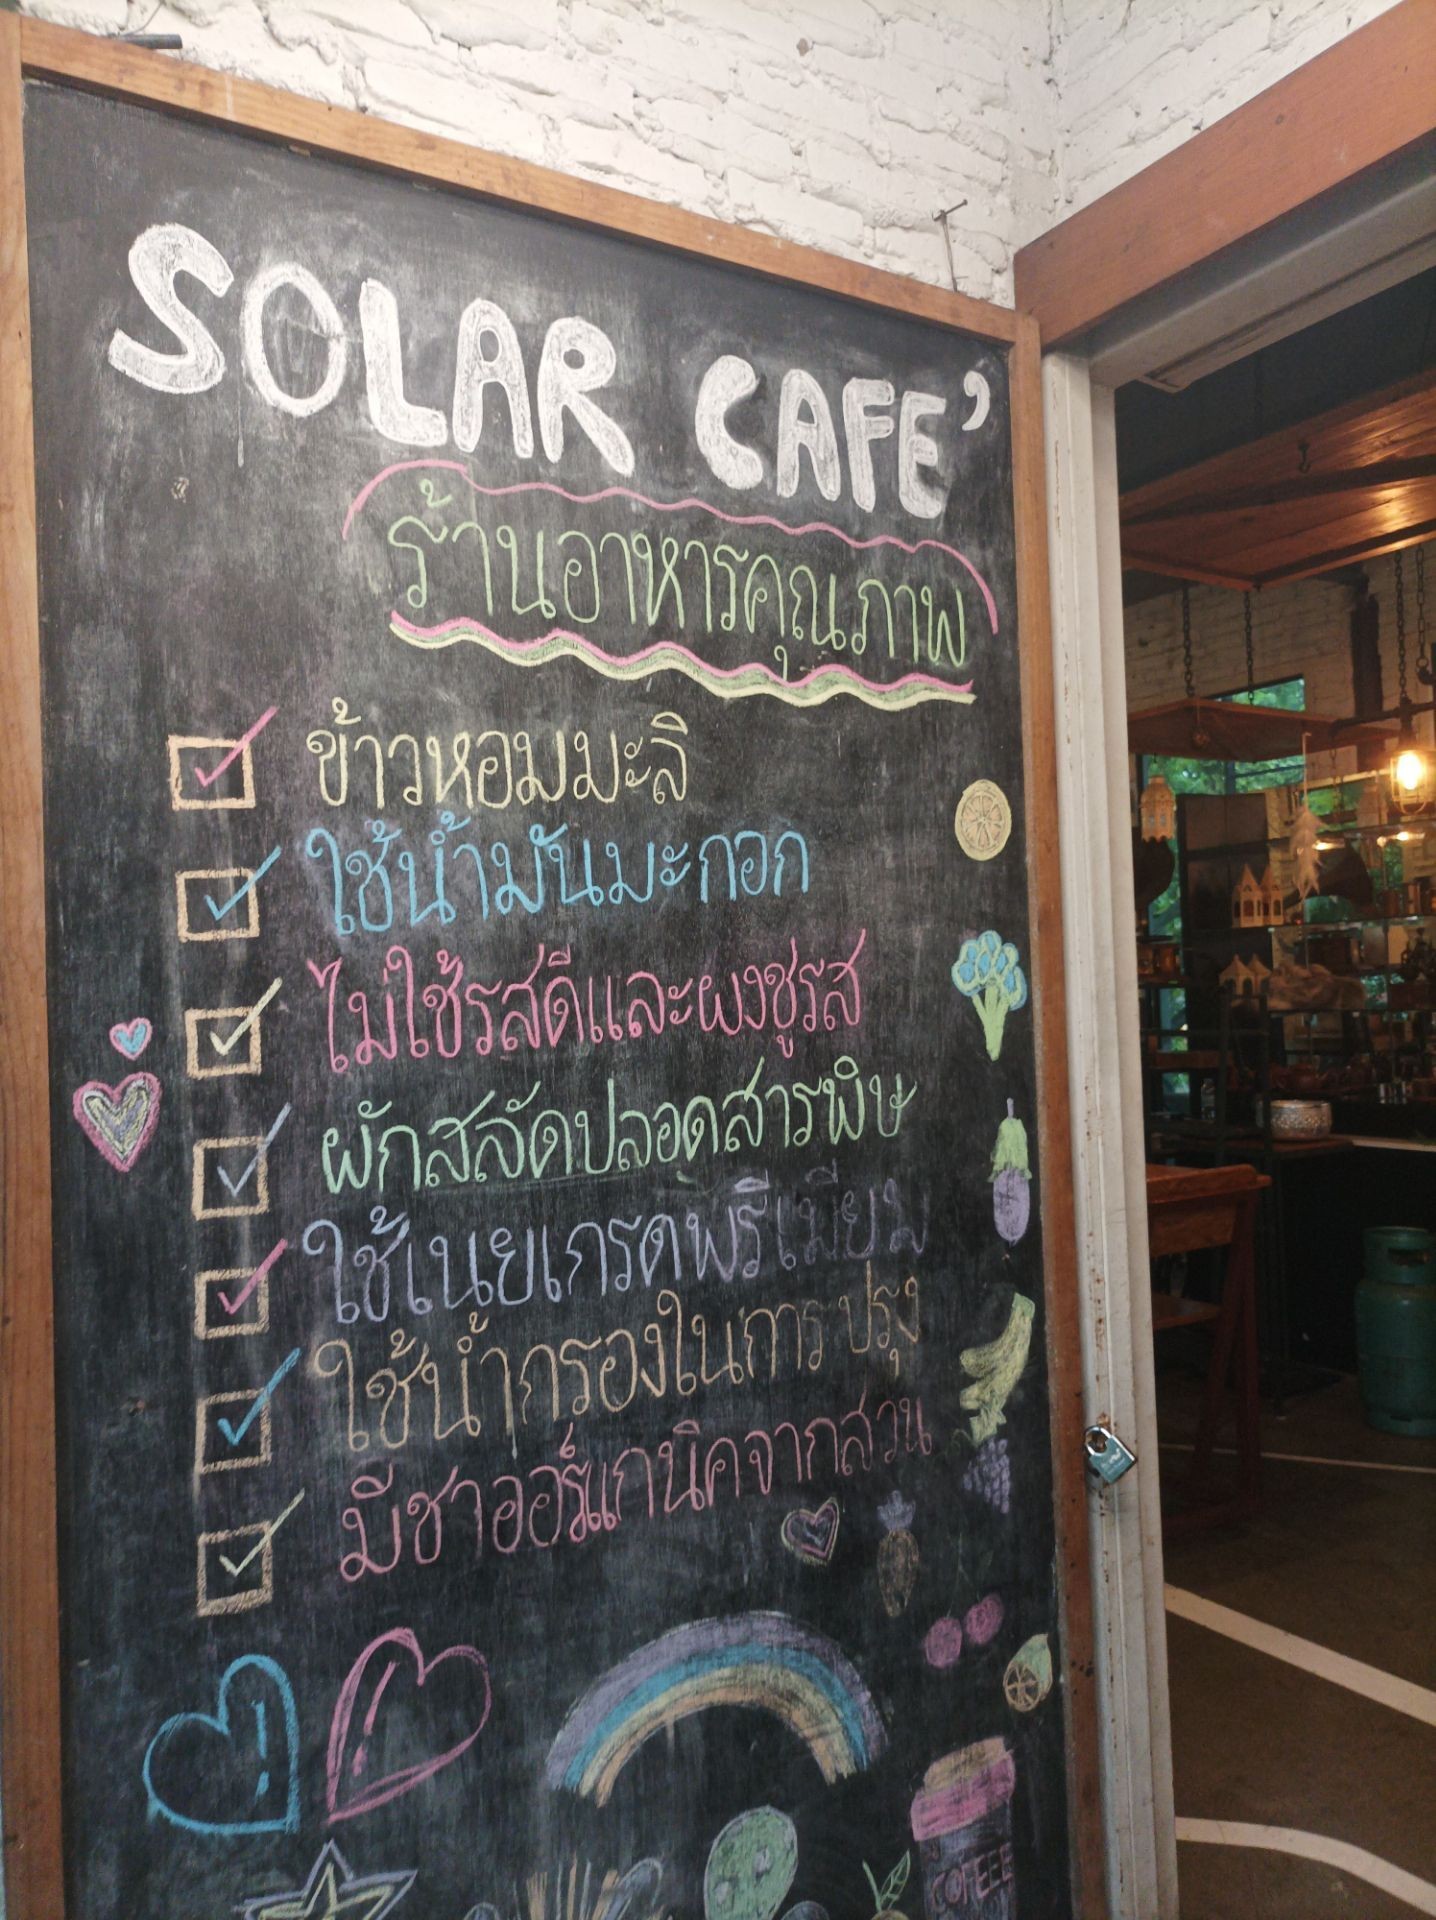 SOLAR CAFE'
ร้านอาหารคุณภาพ
ข้าวหอมมะลิ
ใช้น้ำมันมะกอก
ไม่ใช้รสดีและผงชูรส
ผักสลัดปลอดสารพิษ
ใช้เนยเกรดพรีเมียม
ใช้น้ำกรองในการปรุง
มีชาออร์แกนิคจากสวน
COFEEE